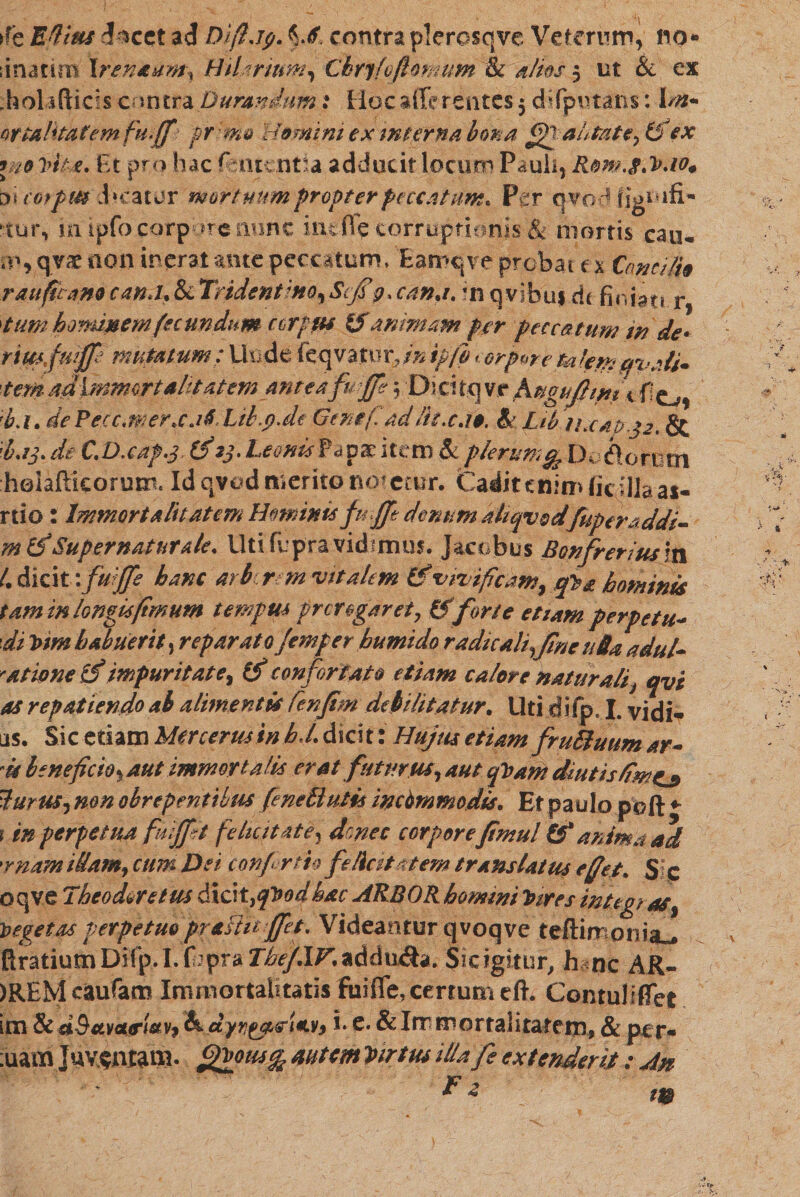 Estius docet ad Dist.19. §.6. contra plerosqve Veterum, no-
Irenæum, Hilarium, Chrysostomum & alios; ut & ex
contra Durandum: Hoc asserentes; disputans: Im-
primo Homini ex interna bona qualitate, & ex
Et pro hac sententia adducit locum Pauli, Rom.8.v.10.
corpus dicatur mortuum propter peccatum. Per qvod signifi-
tur, in ipso corpore nunc inesse corruptionis & mortis cau-
qvæ non inerat ante peccatum. Eamqve probat ex Concilio
can.1. & Tridentino, Sess 9. can.1. in qvibus definiatur,
hominem secundum corpus & animam per peccatum in de-
fuisse mutatum: Unde seqvatur, in ipso corpore talem qvali-
tem ad Immortalitatem antea fuisse; Dicitqve Augustini esse,
de Pecc.mer.c.16. Lib.9.de Genes. ad lit.c.10. & Lib 11.cap.32. &
de C.D.cap.3. & 23. Leonis Papæ item & plerumq; Doctorum
Id qvod merito notetur. Cadit enim sic illa as-
rtio: Immortalitatem Hominis fuisse donum aliqvod superaddi-
m & Supernaturale. Uti supra vidimus. Jacobus Bonfrerius in
l. dicit: fuisse hanc arborem vitalem & vivificam, qvæ hominis
tam in longissimum tempus prorogaret, & forte etiam perpetu-
di vim habuerit, reparato semper humido radicali, sine ulla adul-
ratione & impuritate, & confortato etiam calore naturali, qvi
as repatiendo ab alimentis sensim debilitatur. Uti disp. I. vidi-
us. Sic etiam Mercerus in h.l. dicit: Hujus etiam fructuum ar-
is beneficio, aut immortalis erat futurus, aut qvam diutissime
cturus, non obrepentibus senectutis incommodis. Et paulo post:
in perpetua fuisset felicitate, donec corpore simul & anima ad
rnam illam, cum Dei consortio felicitatem translatus esset. Sic
oqve Theodoretus dicit, qvod hæc ARBOR homini vires integras,
vegetas perpetuo præstitisset. Videantur qvoqve testimonia
stratium Disp. I. supra Thes.IV. adducta. Sic igitur, hanc AR-
OREM causam Immortalitatis fuisse, certum est. Contulisset
im & ἀθανασίαν, & ἀγηρασίαν, i. e. & Immortalitatem, & per-
uam Juventam. Qvousq; autem virtus illa se extenderit: An
F 2 in